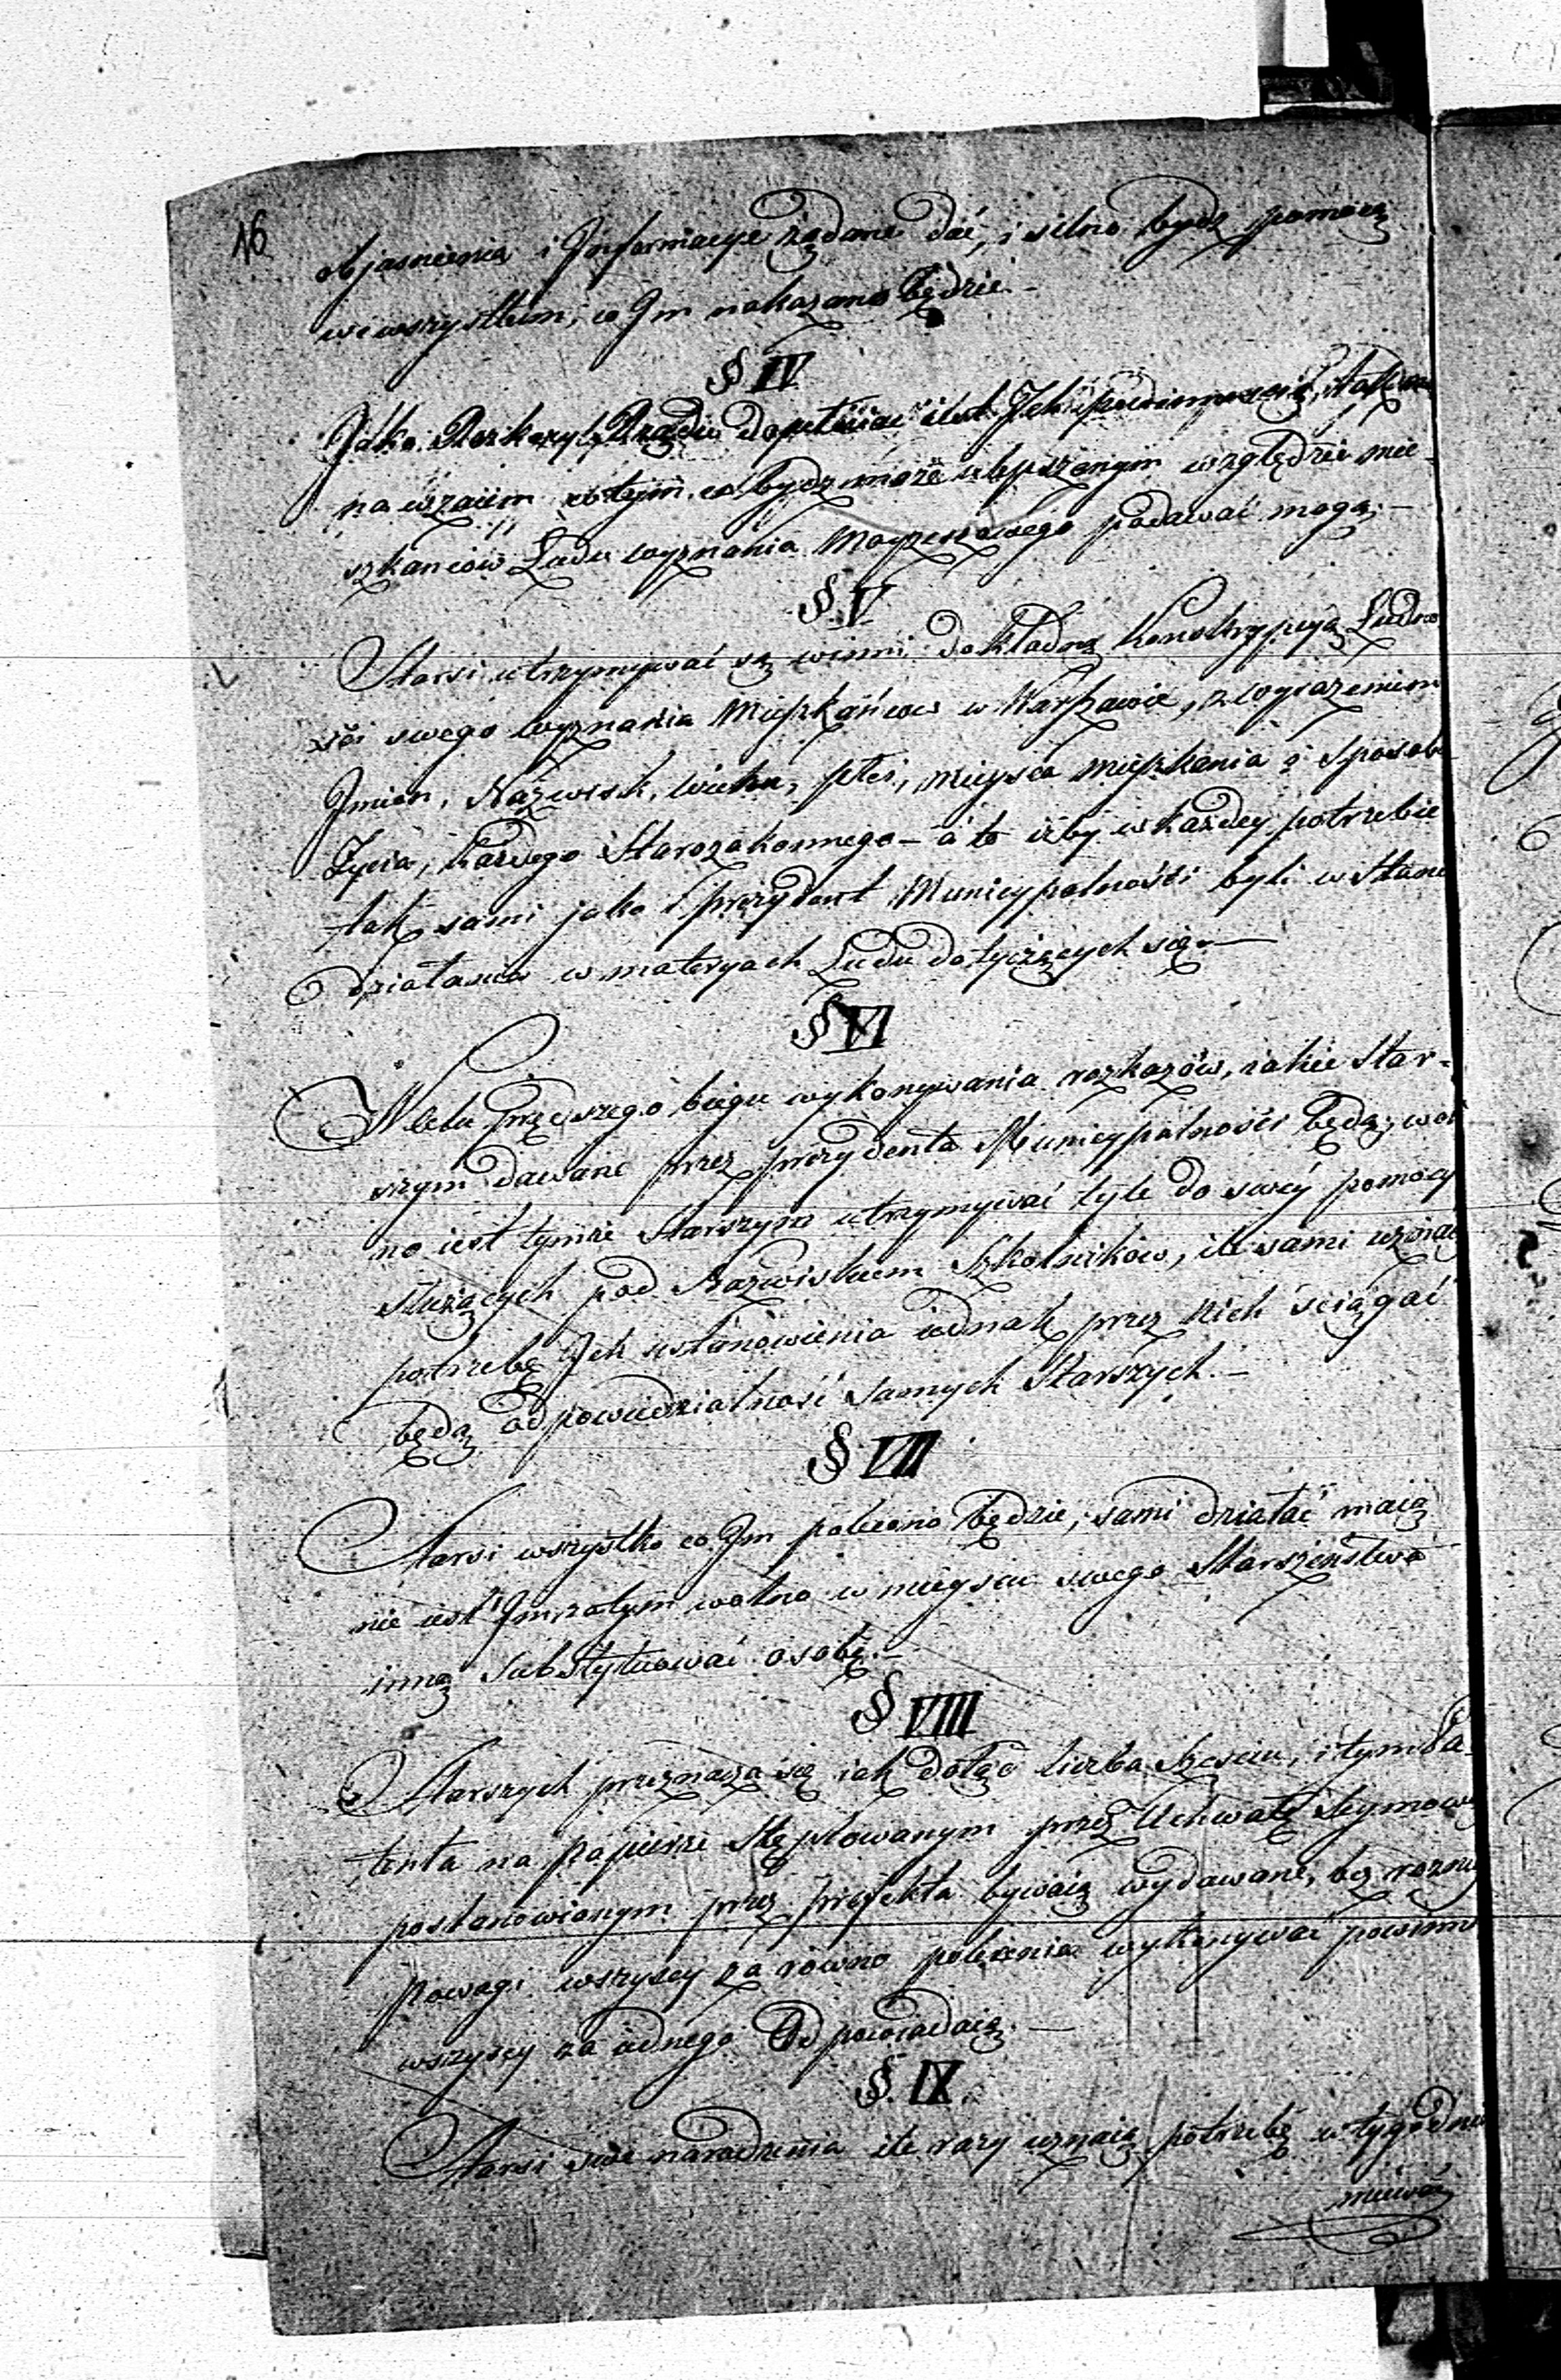 16
objasnienia i Informacye żądane dać, i silno bydz pomocą
wewszystkim, co Im nakazano będzie.—
§ IV
Jako Rozkazy Rządu dopełniać jest Ich powinnością, tak
na wzaiem o tym, co bydz może ulepszonym względzie mie-
szkancow Ludu wyznania Moyzeszowego podawać mogą.—
§ V
Starsi utrzymywać są winni dokładną konskrypcyą Ludno
ści swego wyznania Mieszkańcow w Warszawie, z wyrażeniem
Imion, Nazwisk, wieku, płci, mieysca mieszkania i sposobu
Życia, każdego Starozakonnego — a to iżby w każdey potrzebie
tak sami jako i prezydent Municypalności byli w stanie
działania w materyach Ludu dotyczących się.—
§ VI
W celu prędszego biegu wykonywania rozkazów, iakie Star-
szym dawane przez prezydenta Municypalności będą, wol
no iest tymże Starszym utrzymywać tyle do swéy pomocy
służących pod Nazwiskiem Szkolników, ile sami uznaią
potrzebę Ich ustanowienia iednak przez nich ściągać
będą odpowiedzialność samych Starszych.—
§ VII
Starsi wszystko co Im polecono będzie, sami działać maią
nie iest Im zatym wolno w mieyscu swego Starszeństwa
inną substytuować osobę.—
§ VIII
Starszych przeznacza się iak dotąd liczba Sześciu, i tym Pa-
tenta na papierze Stęplowanym przez Uchwałę Seymową
postanowionym przez prefekta bywaią wydawane, bez rożnicy
powagi wszyscy za równo polecenia wykonywać powinni
wszyscy za iednego Odpowiadaią.—
§ IX.
Starsi swe naradzenia ile razy uznaią potrzebę w tygodniu
miewać